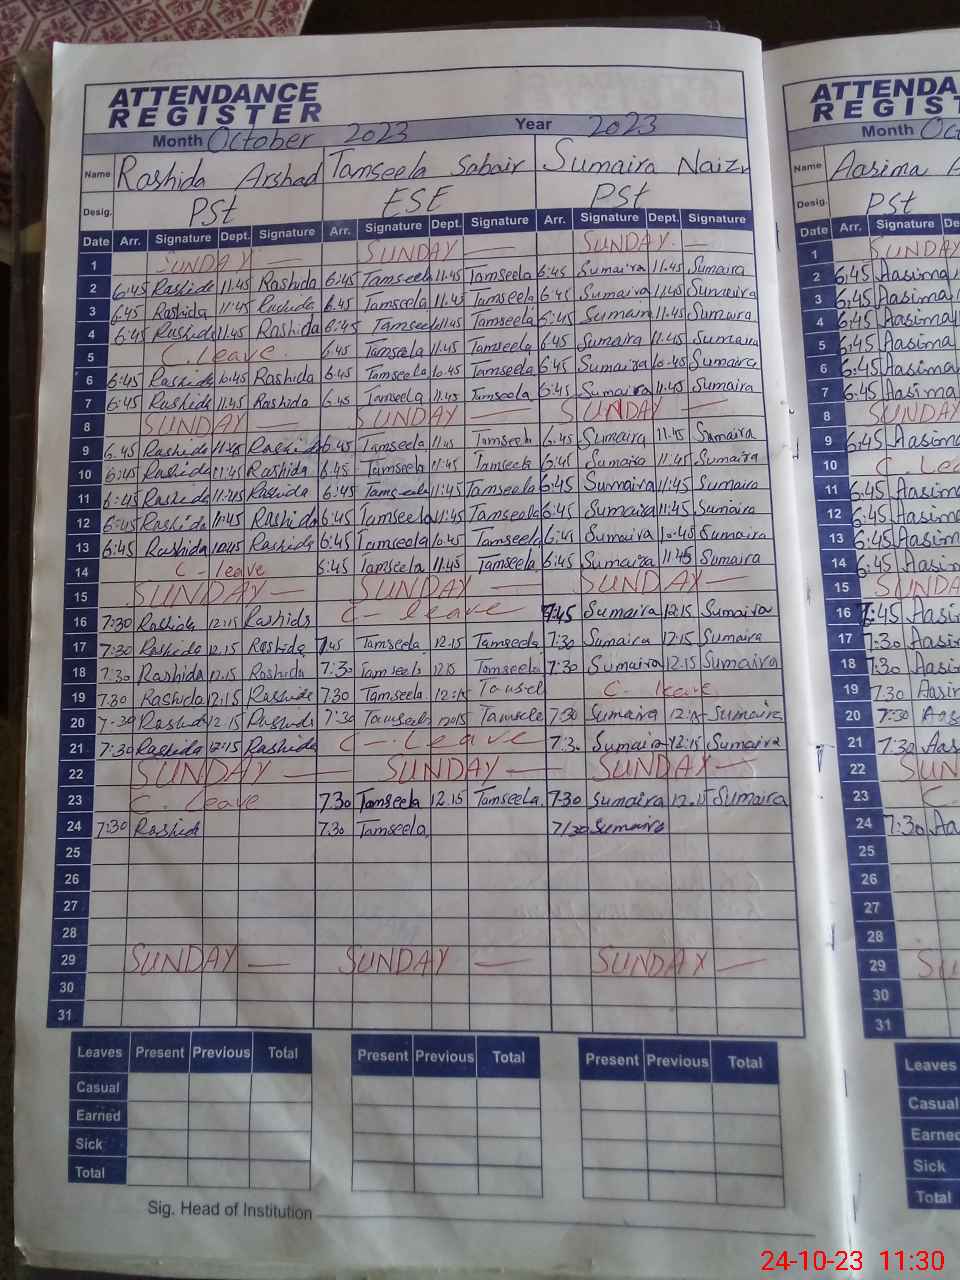 ATTENDANCE
REGISTER
Month October 2023 Year 2023
Name Rashida Arshad Tamseela Sabair Sumaira Naizr
Desig. PSt ESE PSt
Date Arr. Signature Dept. Signature Arr. Signature Dept. Signature Arr. Signature Dept. Signature
1 SUNDAY — SUNDAY — SUNDAY —
2 6:45 Rashida 11:45 Rashida 6:45 Tamseela 11:45 Tamseela 6:45 Sumaira 11:45 Sumaira
3 6:45 Rashida 11:45 Rashida 6:45 Tamseela 11:45 Tamseela 6:45 Sumaira 11:45 Sumaira
4 6:45 Rashida 11:45 Rashida 6:45 Tamseela 11:45 Tamseela 6:45 Sumaira 11:45 Sumaira
5 C. Leave 6:45 Tamseela 11:45 Tamseela 6:45 Sumaira 11:45 Sumaira
6 6:45 Rashida 10:45 Rashida 6:45 Tamseela 10:45 Tamseela 6:45 Sumaira 10:45 Sumaira
7 6:45 Rashida 11:45 Rashida 6:45 Tamseela 11:45 Tamseela 6:45 Sumaira 11:45 Sumaira
8 SUNDAY — SUNDAY — SUNDAY —
9 6:45 Rashida 11:45 Rashida 6:45 Tamseela 11:45 Tamseela 6:45 Sumaira 11:45 Sumaira
10 6:45 Rashida 11:45 Rashida 6:45 Tamseela 11:45 Tamseela 6:45 Sumaira 11:45 Sumaira
11 6:45 Rashida 11:45 Rashida 6:45 Tamseela 11:45 Tamseela 6:45 Sumaira 11:45 Sumaira
12 6:45 Rashida 11:45 Rashida 6:45 Tamseela 11:45 Tamseela 6:45 Sumaira 11:45 Sumaira
13 6:45 Rashida 10:45 Rashida 6:45 Tamseela 10:45 Tamseela 6:45 Sumaira 10:45 Sumaira
14 C- leave 6:45 Tamseela 11:45 Tamseela 6:45 Sumaira 11:45 Sumaira
15 SUNDAY — SUNDAY — SUNDAY —
16 7:30 Rashida 12:15 Rashida C- leave 7:45 Sumaira 12:15 Sumaira
17 7:30 Rashida 12.15 Rashida 7:45 Tamseela 12.15 Tamseela 7:30 Sumaira 12:15 Sumaira
18 7:30 Rashida 12.15 Rashida 7:30 Tamseela 12:15 Tamseela 7:30 Sumaira 12:15 Sumaira
19 7:30 Rashida 12:15 Rashida 7:30 Tamseela 12:15 Tamseel C- leave
20 7:30 Rashida 12:15 Rashida 7:30 Tamseela 12:15 Tamseela 7:30 Sumaira 12:15 Sumaira
21 7:30 Rashida 12:15 Rashida C-. Leave 7:30 Sumaira 12:15 Sumaira
22 SUNDAY — SUNDAY — SUNDAY —
23 C. Leave 7.30 Tamseela 12.15 Tamseela 7:30 Sumaira 12.15 Sumaira
24 7:30 Rashida 7.30 Tamseela 7:30 Sumaira
25
26
27
28
29 SUNDAY — SUNDAY — SUNDAY —
30
31
Leaves Present Previous Total Present Previous Total Present Previous Total
Casual
Earned
Sick
Total
Sig. Head of Institution
ATTENDA
REGIST
Month Oct
Name Aasima A
Desig. PSt
Date Arr. Signature De
1 SUNDAY
2 6:45 Aasima
3 6:45 Aasima
4 6:45 Aasima
5 6:45 Aasima
6 6:45 Aasima
7 6:45 Aasima
8 SUNDAY
9 6:45 Aasima
10 C. Lea
11 6:45 Aasima
12 6:45 Aasima
13 6:45 Aasima
14 6:45 Aasima
15 SUNDA
16 7:45 Aasi
17 7:30 Aasi
18 7:30 Aasi
19 7.30 Aasi
20 7:30 Aas
21 7:30 Aas
22 SUN
23 C.
24 7:30 Aa
25
26
27
28
29 SU
30
31
Leaves
Casual
Earned
Sick
Total
24-10-23 11:30